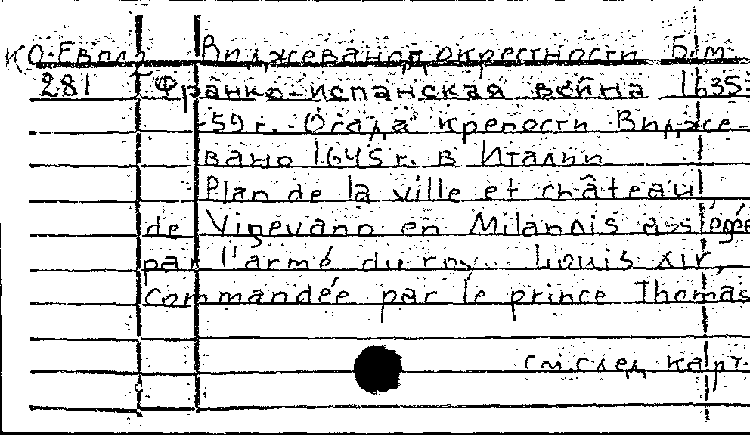 КО-Европ Виджеванод окрестности Б.м.
281 Франко-испанская война 1635-
-59 г. Осада крепости Видже-
вано 1645 г. в Италии
Plan de la ville et château
de Vigevano en Milannis assiégée
par l'armé du roy Louis XIV,
commandée par le prince Thomas
см. след карт.